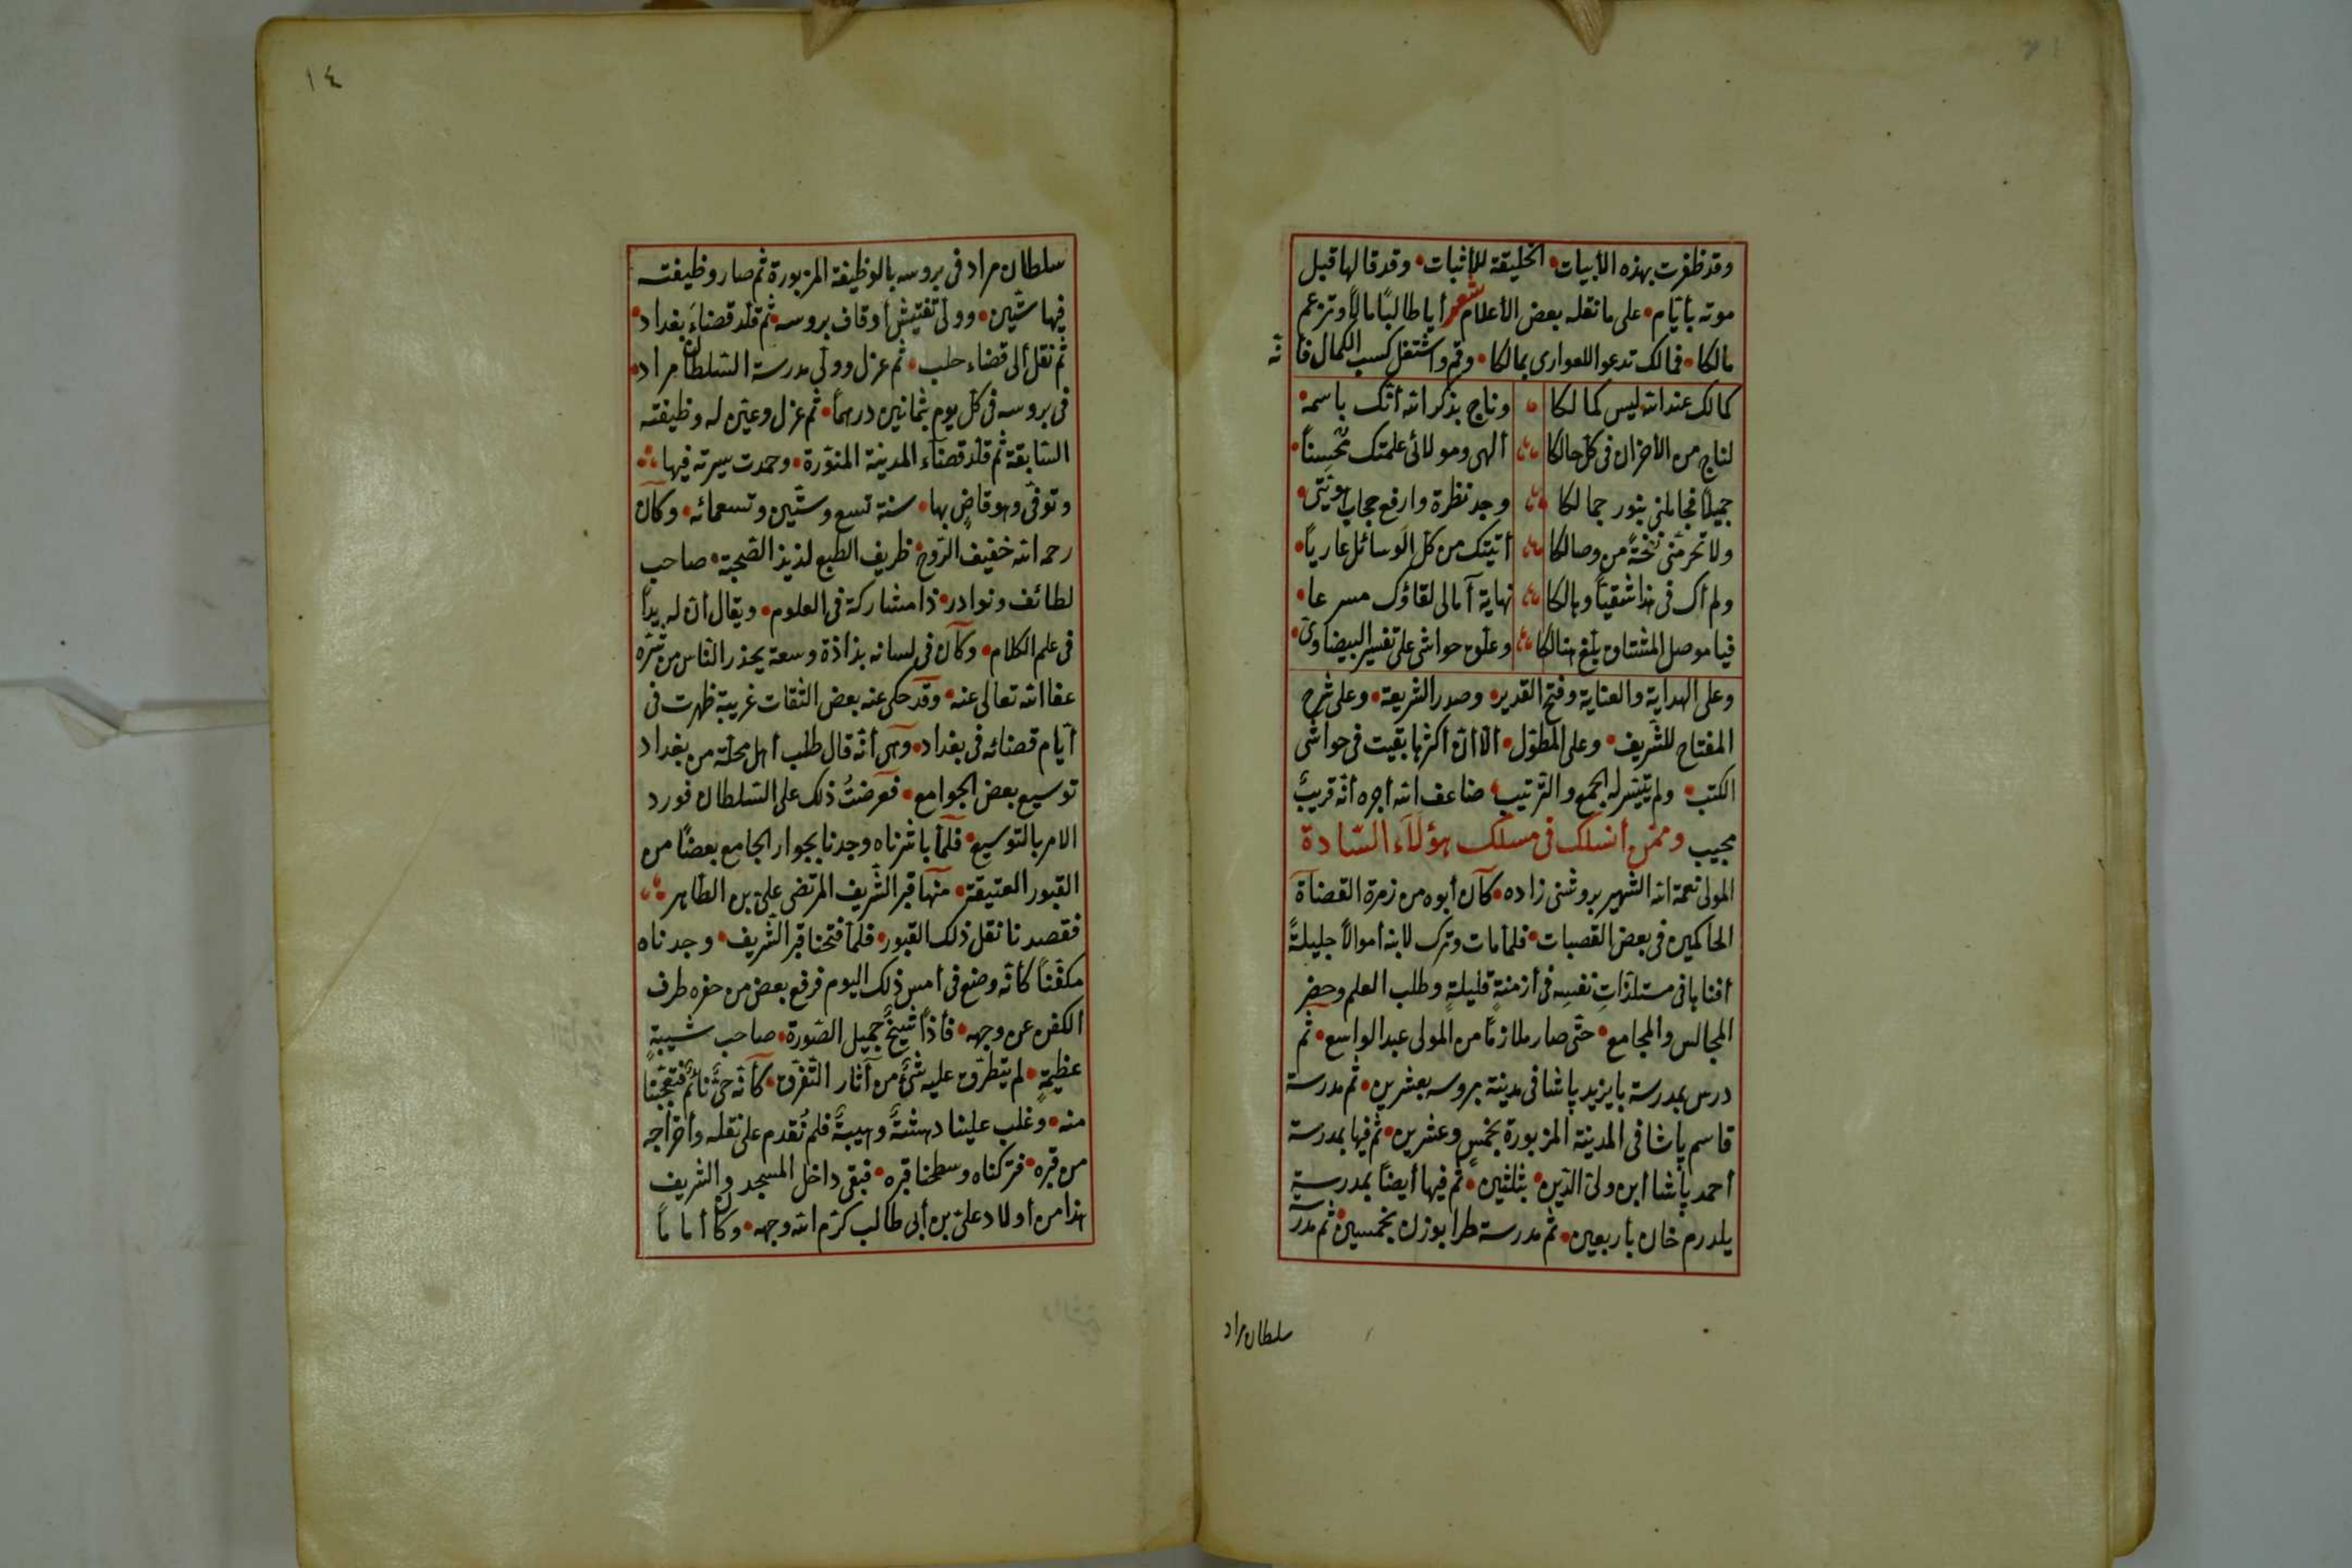 وقد ظفرت بهذه الأبيات الخليقة للأثبات وقد قالها قبل
موته بأيام على ما نقله بعض الأعلام شعر أيا طالبًا مالًا وتزعم
مالكا فمالك تدعو للعواري بمالكا وقم واشتغل كسب الكمال فانه
كمالك عند الله ليس كمالكا وناج بذكر الله انك باسمه
لناج من الأحزان في كل حالكا الهي ومولائي علمتك محسنًا
جميلا فجاملني بنور جمالكا وجد نظرة وارفع حجاب هويتي
ولا تحرمني نفحة من وصالكا أتيتك من كل الوسائل عاريًا
ولم أك في هذا شقيًا وهالكا نهاية آمالي لقاؤك مسرعا
فيا موصل المشتاق بلغ هنالكا وعلق حواشي على تفسير البيضاوي
وعلى الهداية والعناية وفتح القدير وصدر الشريعة وعلى شرح
المفتاح للشريف وعلى المطول الا ان أكثرها بقيت في حواشي
الكتب ولم يتيسر له الجمع والترتيب ضاعف الله أجره أنه قريبٌ
مجيب وممن انسلك في مسلك هؤلآء السادة
المولى نعمة الله الشهير بروشني زاده كان أبوه من زمرة القضاة
الحاكمين في بعض القصبات فلما مات وترك لابنه أموالًا جليلةً
أفناها في مستلذاتِ نفسِه في أزمنةٍ قليلةٍ وطلب العلم وحضر
المجالس والمجامع حتى صار ملازمًا من المولى عبد الواسع ثم
درس بمدرسة بايزيد پاشا في مدينة بروسه بعشرين ثم مدرسة
قاسم پاشا في المدينة المزبورة بخمس وعشرين ثم فيها بمدرسة
أحمد پاشا ابن ولي الدين بثلثين ثم فيها أيضًا بمدرسة
يلدرم خان بأربعين ثم مدرسة طرابوزن بخمسين ثم مدر
سلطان مراد
١٤
سلطان مراد في بروسه بالوظيفة المزبورة ثم صار وظيفته
فيها ستين وولي تفتيش أوقاف بروسه ثم قلد قضاء بغداد
ثم نقل الى قضاء حلب ثم عزل وولي مدرسة السلطان مراد
في بروسه في كل يوم بثمانين درهمًا ثم عزل وعين له وظيفته
السابقة ثم قلد قضآء المدينة المنورة وحمدت سيرته فيها
وتوفي وهو قاضٍ بها سنة تسع وستين وتسعمائه وكان
رحمه الله خفيف الروح ظريف الطبع لذيذ الصحبة صاحب
لطائف ونوادر ذا مشاركة في العلوم ويقال أن له يدًا
في علم الكلام وكان في لسانه بذاذة وسعة يحذر الناس من شره
عفا الله تعالى عنه وقد حكى عنه بعض الثقات غريبة ظهرت في
أيام قضائه في بغداد وهي أنه قال طلب أهل محلة من بغداد
توسيع بعض الجوامع فعرضتُ ذلك على السلطان فورد
الامر بالتوسيع فلما باشرناه وجدنا بجوار الجامع بعضًا من
القبور العتيقة منها قبر الشريف المرتضى علي بن الطاهر
فقصدنا نقل ذلك القبور فلما فتحنا قبر الشريف وجدناه
مكفنًا كأنه وضع في أمس ذلك اليوم فرفع بعض من حفره طرف
الكفن عن وجهه فأذا شيخٌ جميل الصورة صاحب شيبةٍ
عظيمةٍ لم يتطرق عليه شئٌ من آثار التفرق كأنه حيٌّ نائمٌ فتعجبنا
منه وغلب علينا دهشةٌ وهيبةٌ فلم نُقدم على نقله وأخراجه
من قبره فتركناه وسطحنا قبره فبقي داخل المسجد والشريف
هذا من أولاد علي بن أبي طالب كرم الله وجهه وكان أمامًا